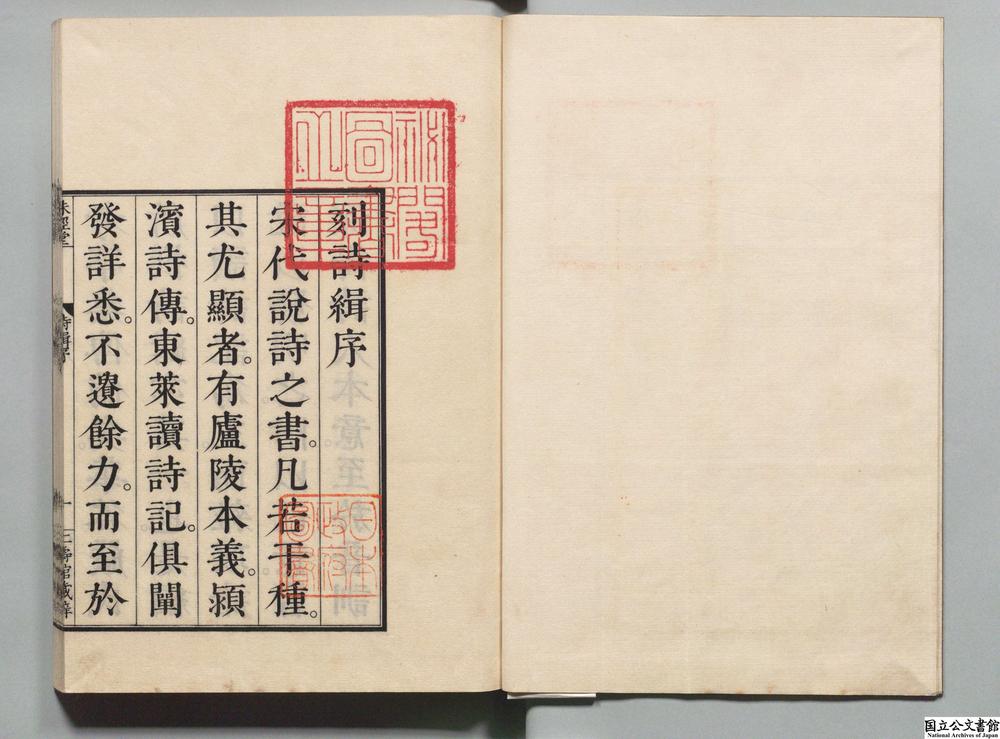 刻詩緝序
宋代說詩之書。凡若干種。
其尤顯者。有廬陵本義。潁
濱詩傳。東萊讀詩記。俱闡
發詳悉。不遺餘力。而至於
詩緝序
一
日本
政府
圖書
国立公文書館
National Archives of Japan